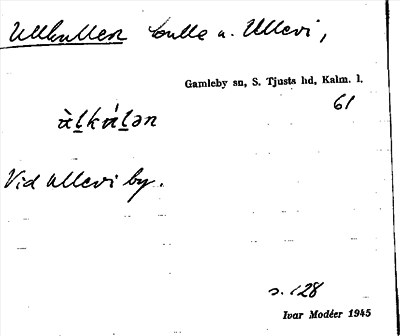 Ullkullen kulle u. Ullevi,
Gamleby sn, S. Tjusts hd, Kalm. l.
61
ù̀ḻkúḻən
Vid Ullevi by.
s. 128
Ivar Modéer 1945